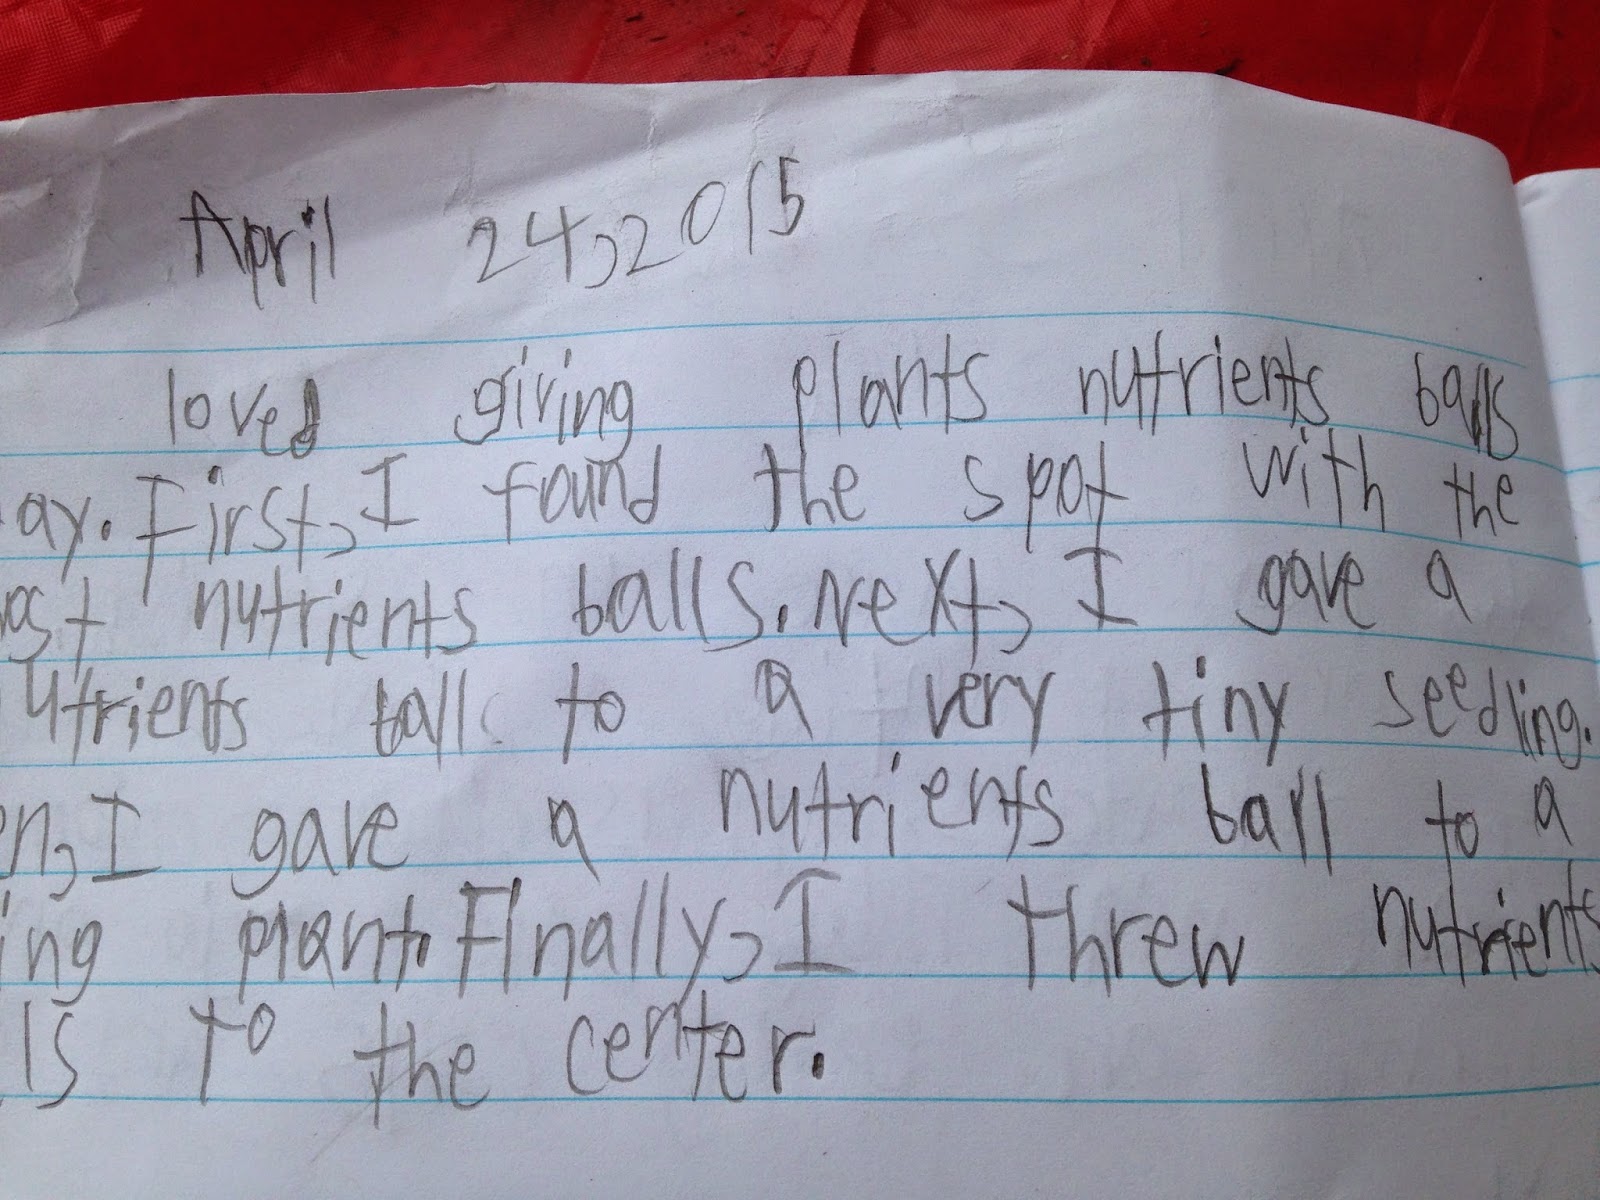 April 24, 2015
loved giving plants nutrients balls
ay. First, I found the spot with the
ost nutrients balls. Next, I gave a
utrients ball to a very tiny seedling.
en, I gave a nutrients ball to a
ing plant. Finally, I threw nutrients
ls to the center.